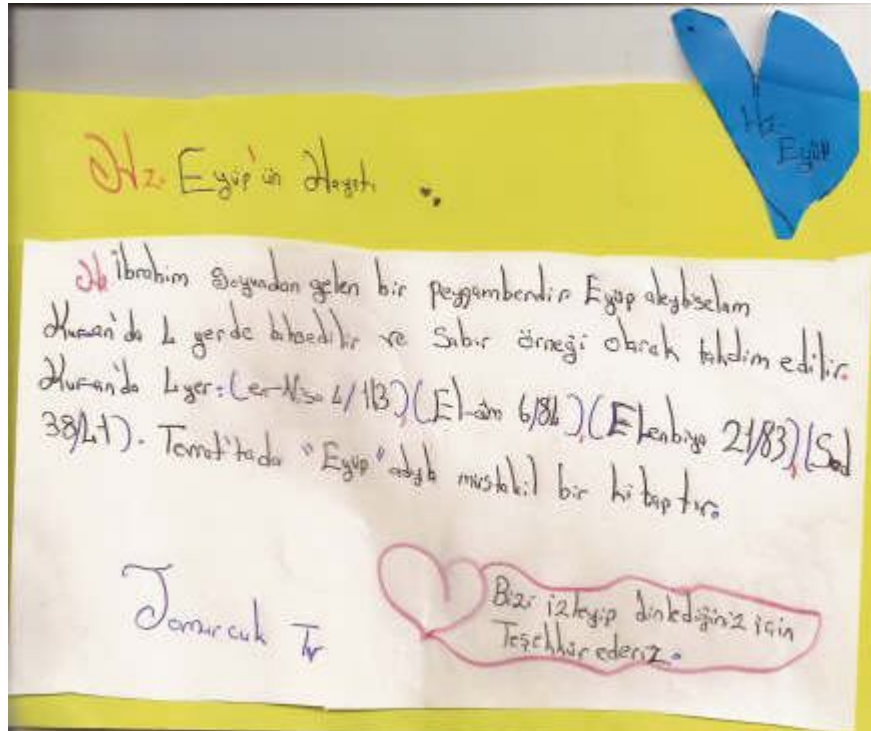 Hz. Eyüp
Hz. Eyüp'ün Hayatı
Hz İbrahim Soyundan gelen bir peygamberdir Eyüp aleyhiselam
Kuran'da 4 yerde bahsedilir ve Sabır örneği olarak takdim edilir.
Kuran'da 4 yer: (en-Nisa 4/163) (El-am 6/84) (El enbiya 21/83) (Sad
38/41). Tevrat'tada "Eyüp" adıyla müstakil bir kitaptır.
Tomurcuk Tv
Bizi izleyip dinlediğiniz için
Teşekkür ederiz.